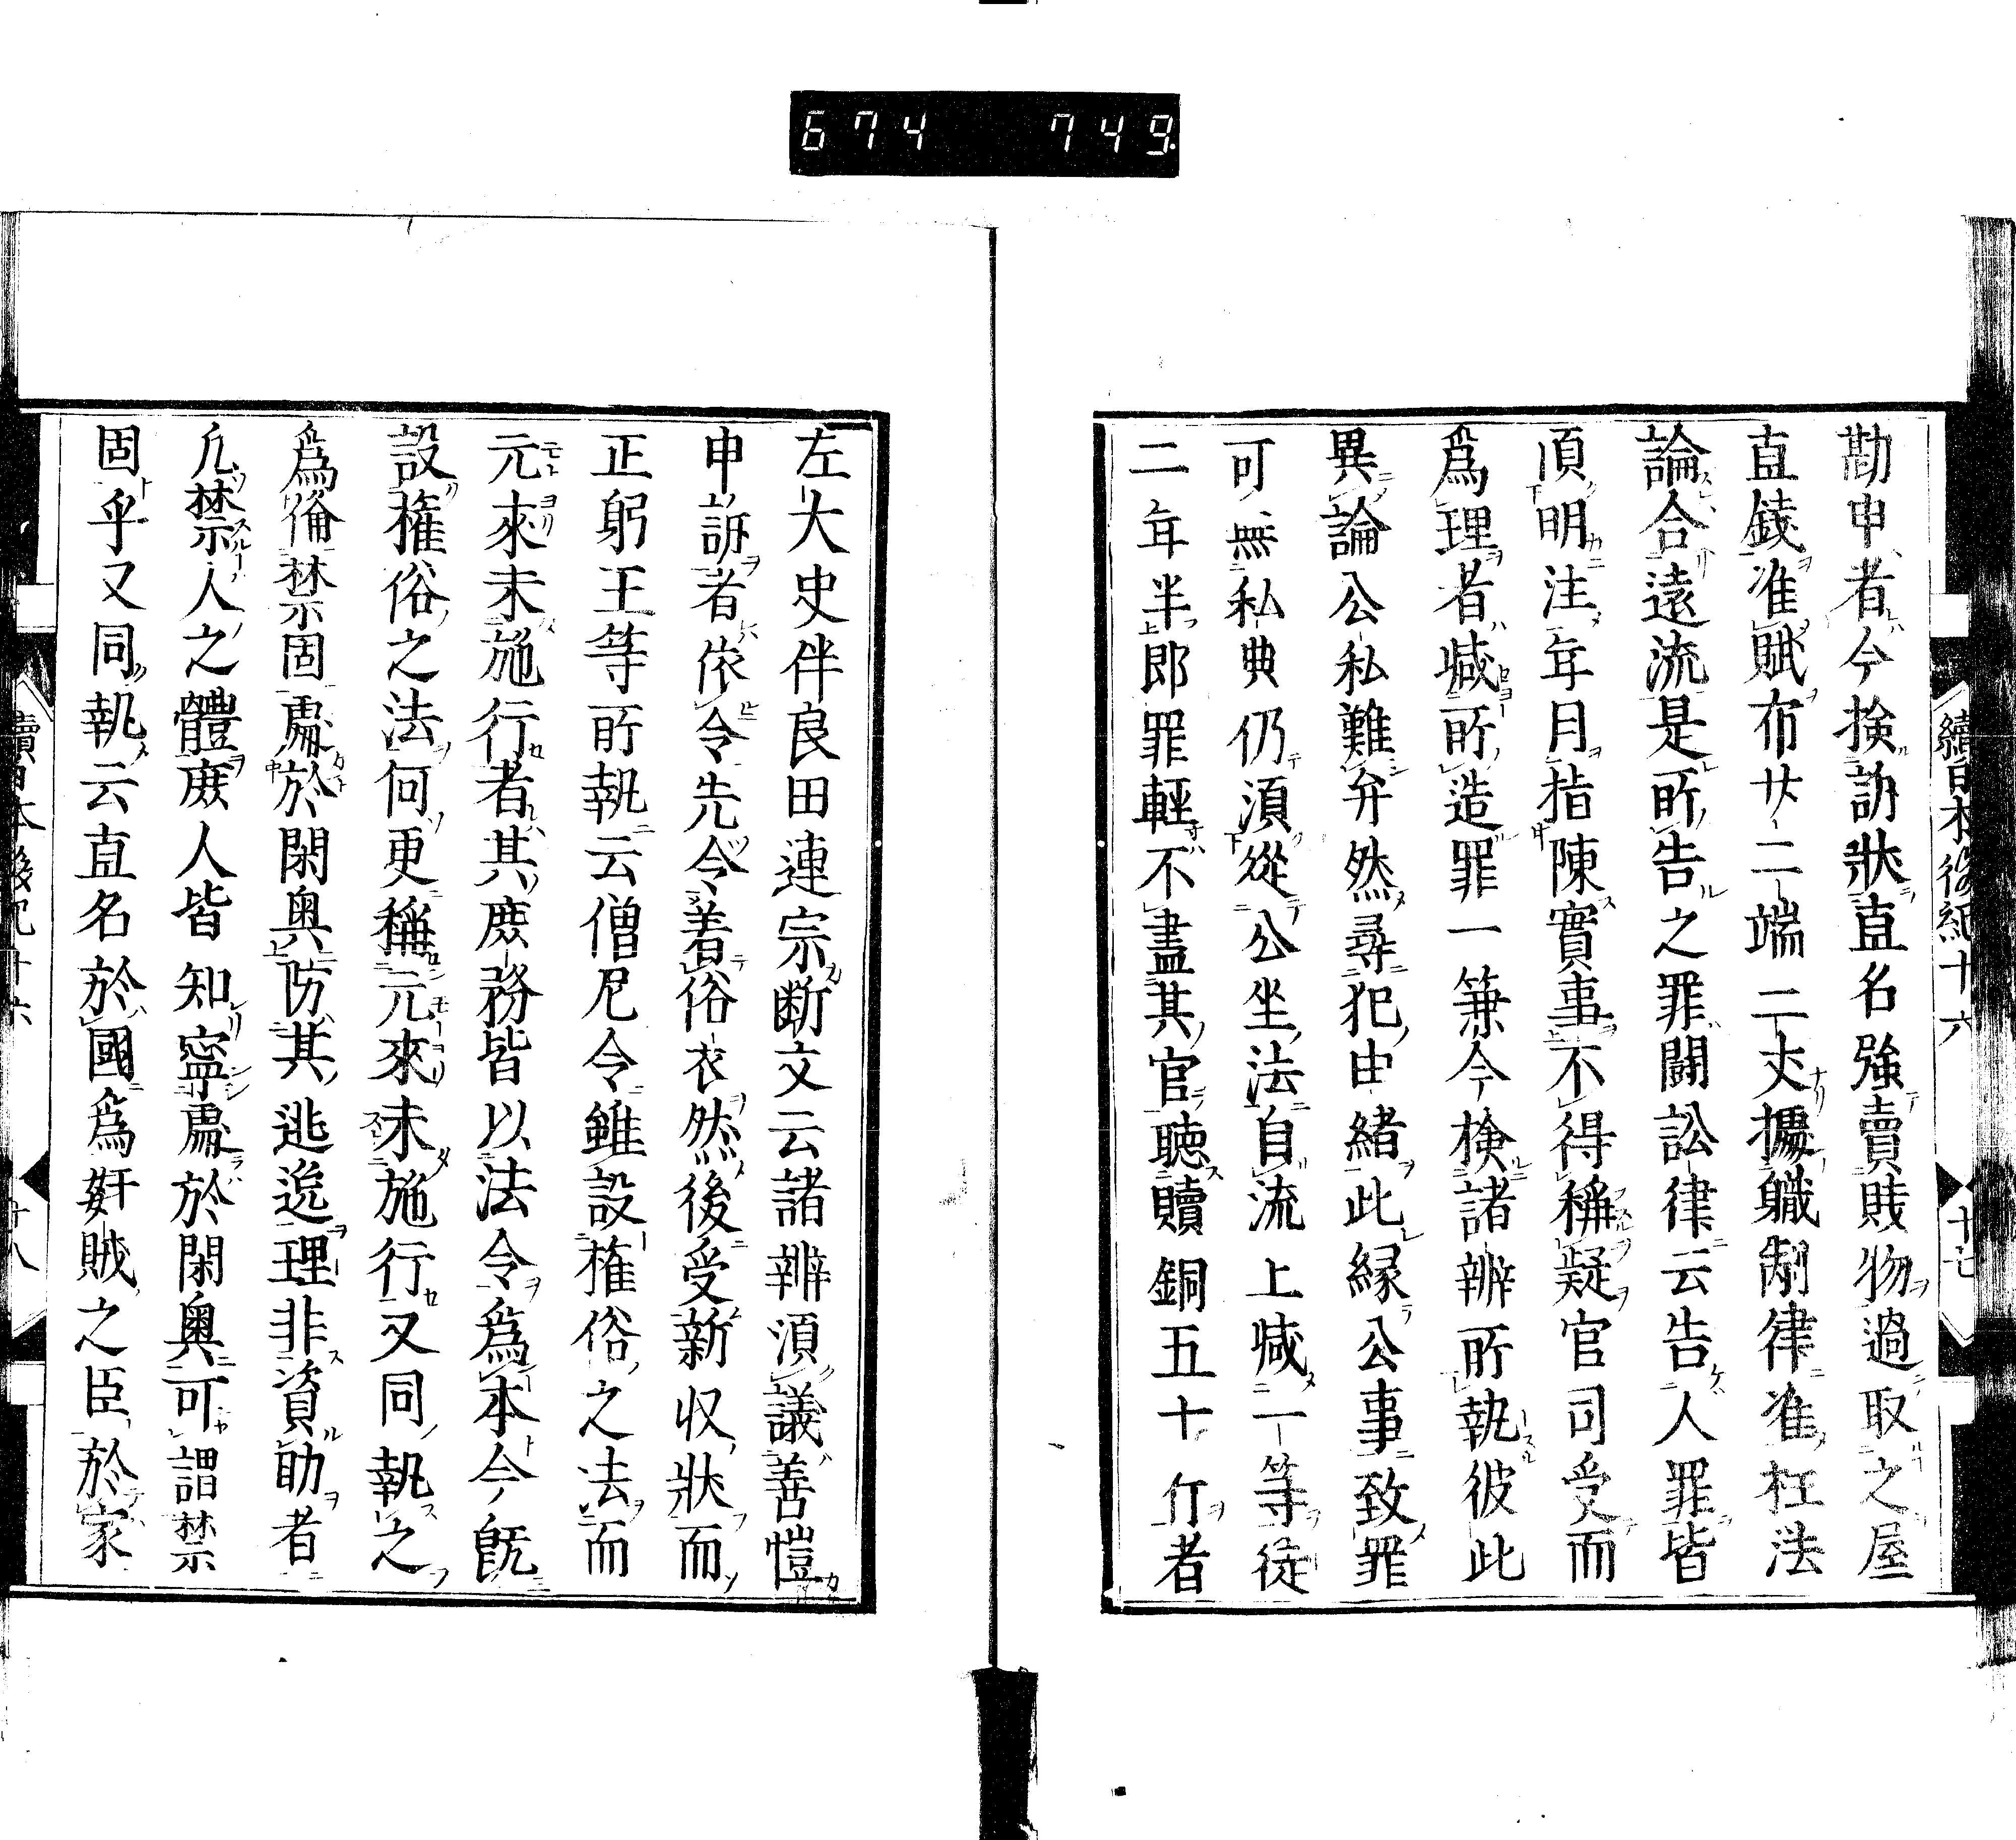 674 749
續日本後紀十六 十七
勘申者今檢訪狀直名強賣賤物過取之屋
直錢准賦布廿二端二丈據職制律准枉法
論合遠流是所告之罪鬪訟律云告人罪皆
湏明注年月指陳實事不得稱疑官司受而
爲理者减所造罪一䓁今檢諸辨所執彼此
異論公私難弁然尋犯由緒此緣公事致罪
可無私典仍湏從公坐法自流上减一等徒
二年半郎罪輕不盡其官聽贖銅五十斤者
左大史伴良田連宗断文云諸辨湏議善愷
申訴者依令先令著俗衣然後受新収狀而
正躬王等所執云僧尼令雖設權俗之法而
元來未施行者其庶務皆以法令爲本今旣
設權俗之法何更稱元來未施行又同執之
爲脩禁固處於閑奥防其逃逸理非資助者
凡禁人之體庶人皆知寧處於閑奥可謂禁
固乎又同執云直名於國爲姧賊之臣於家
續日本後紀十六 十八